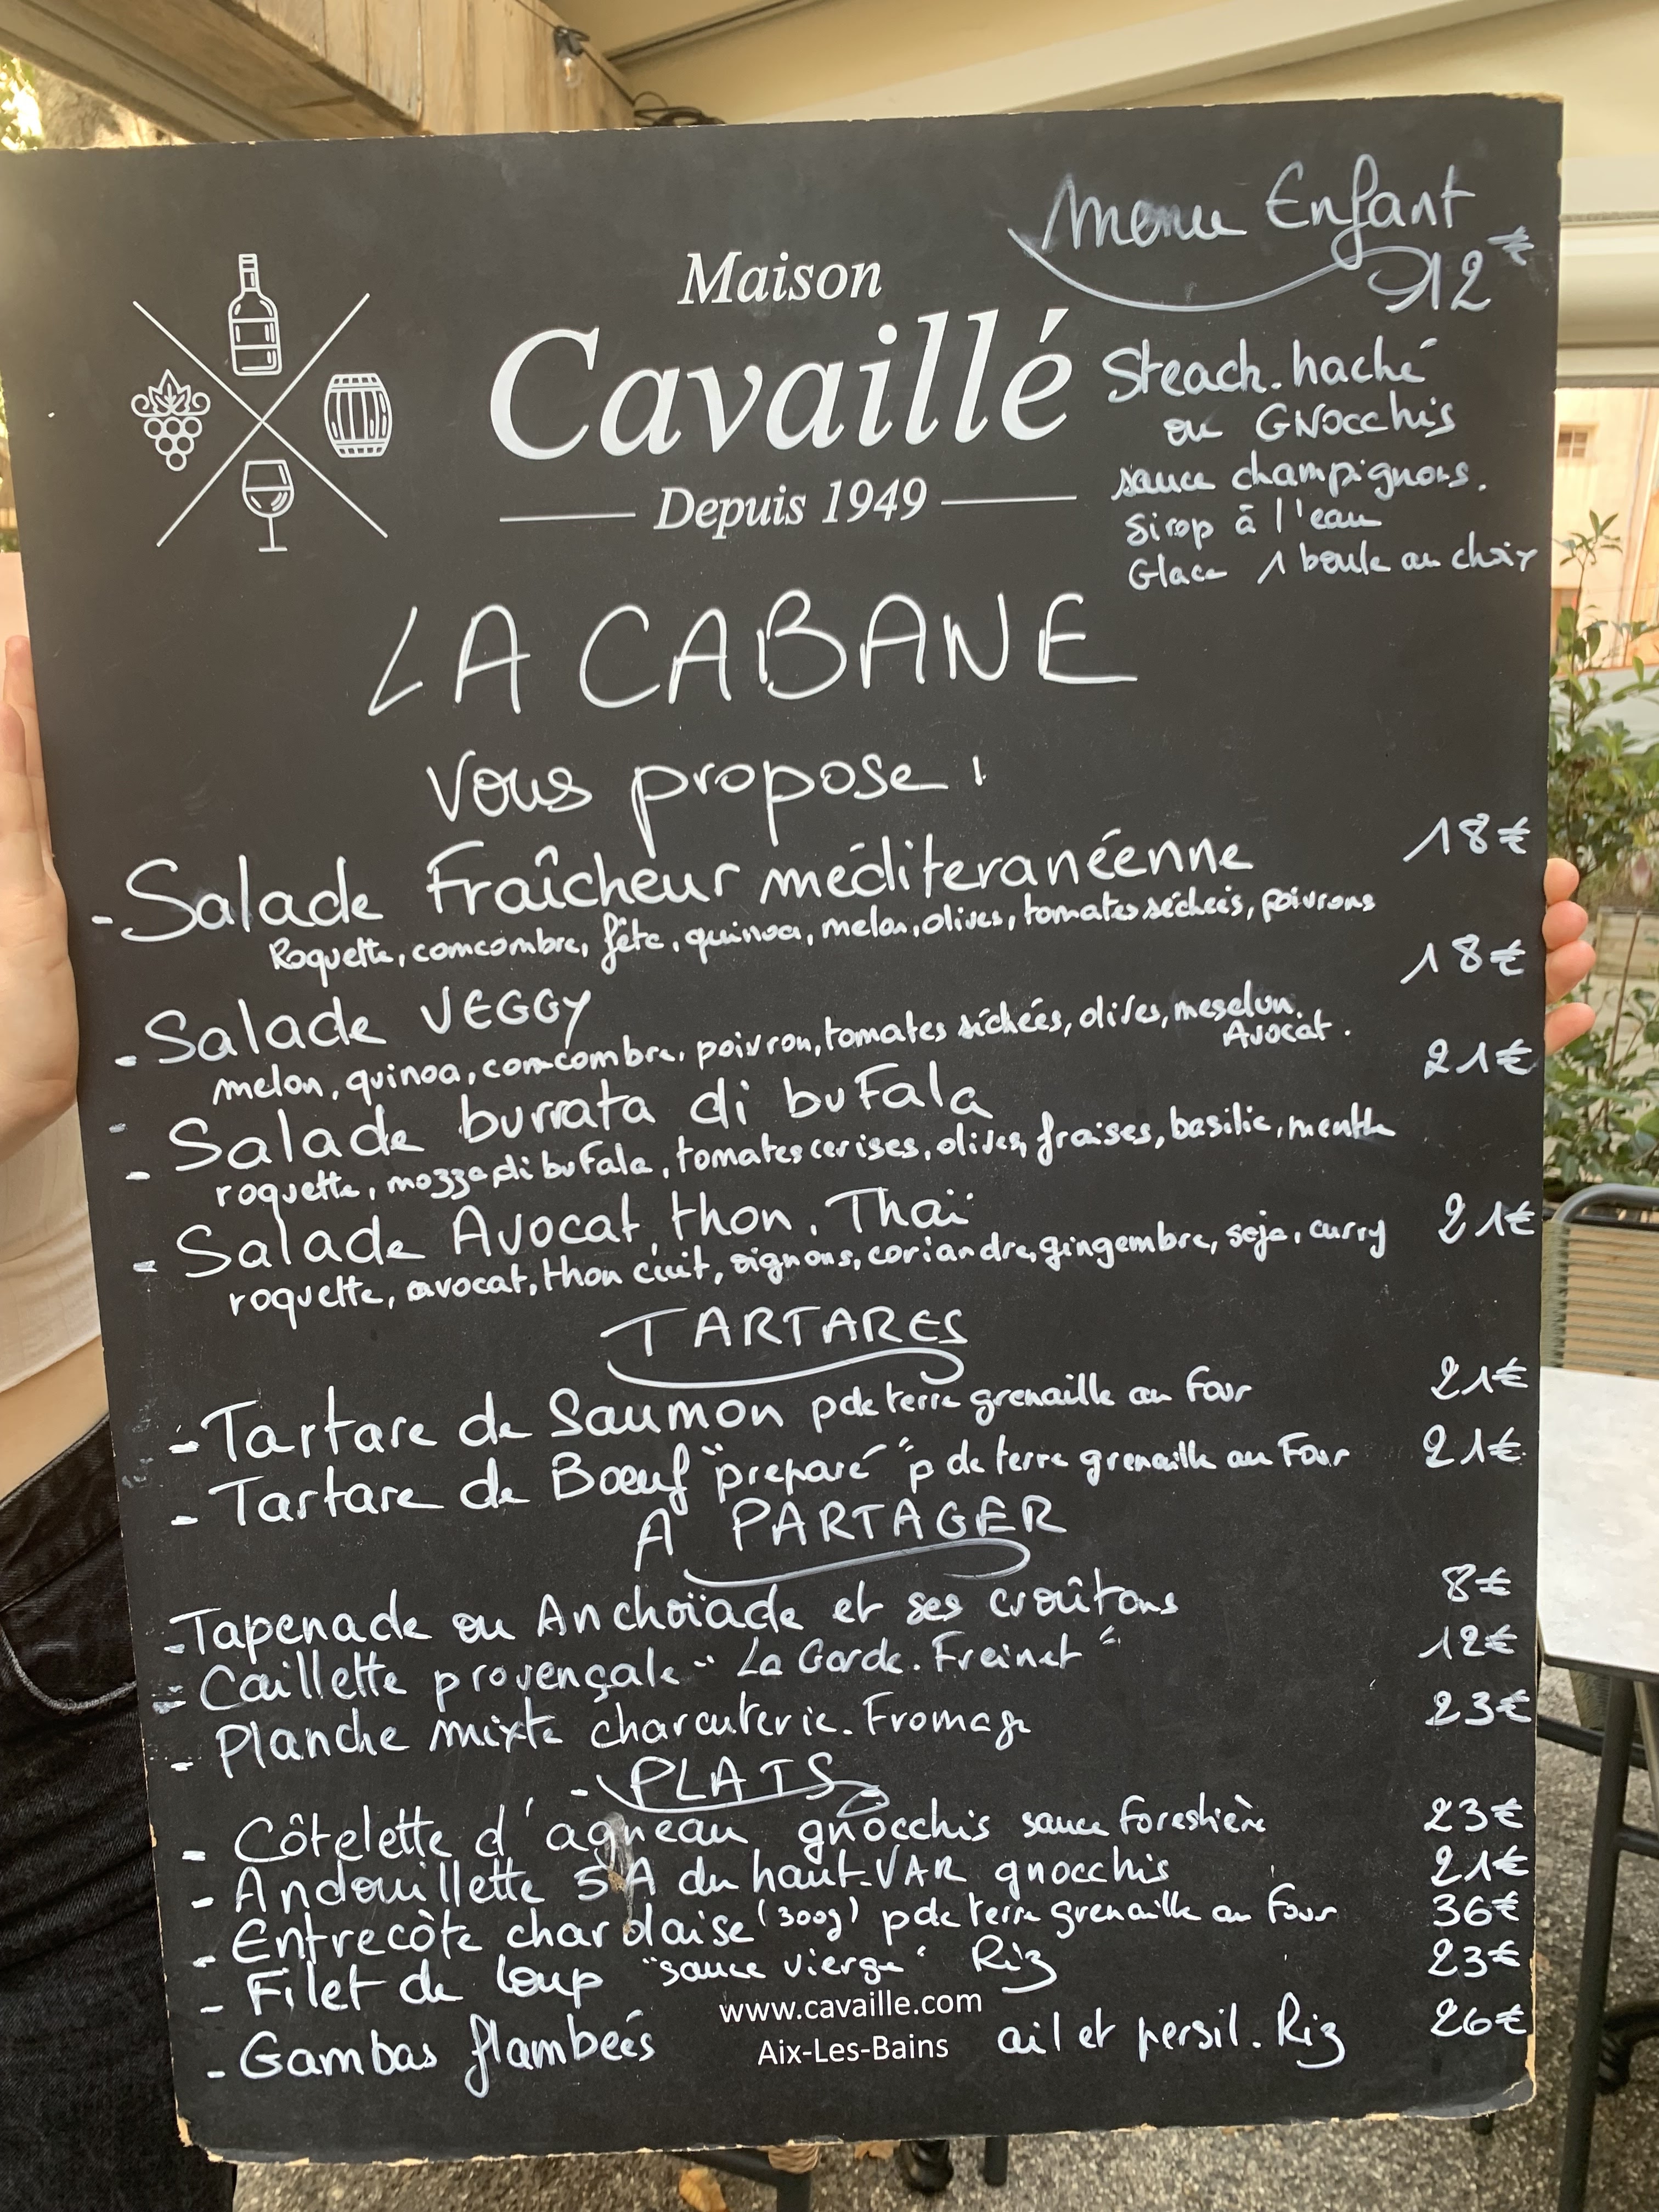 Menu Enfant
12€
Maison
Cavaillé
Depuis 1949
Steach. haché
ou GNocchis
sauce champignons.
Sirop à l'eau
Glace 1 boule au choix
LA CABANE
Vous propose :
- Salade Fraîcheur méditeranéenne 18€
Roquette, comcombre, féta, quinoa, melon, olives, tomates séchées, poivrons
- Salade VEGGY 18€
melon, quinoa, comcombre, poivron, tomates séchées, olives, mesclun.
Avocat.
- Salade burrata di buFala 21€
roquette, mozza di buFala, tomates cerises, olives, fraises, basilic, menthe
- Salade Avocat, thon, Thaï 21€
roquette, avocat, thon cuit, oignons, coriandre, gingembre, soja, curry
TARTARES
- Tartare de Saumon p de terre grenaille au Four 21€
- Tartare de Boeuf "preparé" p de terre grenaille au Four 21€
A PARTAGER
- Tapenade ou Anchoïade et ses croûtons 8€
- Caillette provençale "La Garde. Freinet" 12€
- Planche mixte charcuterie. Fromage 23€
- PLATS
- Côtelette d'agneau gnocchis sauce Forestière 23€
- Andouillette 5A du haut-VAR gnocchis 21€
- Entrecôte charolaise (300g) p de terre grenaille au Four 36€
- Filet de loup "sauce vierge" Riz 23€
www.cavaille.com
- Gambas flambeés ail et persil. Riz 26€
Aix-Les-Bains